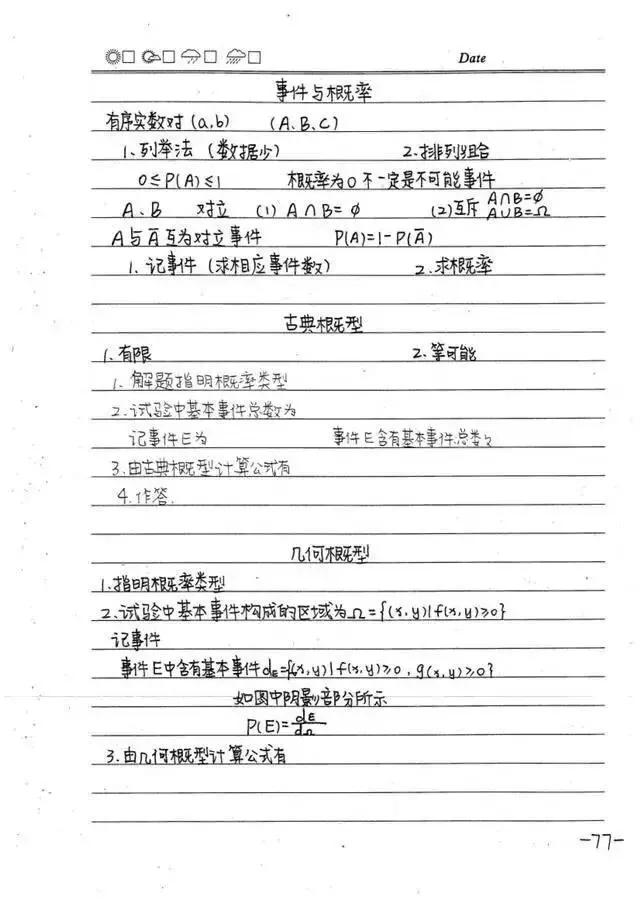 Date
事件与概率
有序实数对(a,b) (A、B、C)
1、列举法(数据少) 2、排列组合
0≤P(A)≤1 概率为0不一定是不可能事件
A、B 对立 (1) A∩B=∅ (2)互斥 A∩B=∅ A∪B=Ω
A与A̅互为对立事件 P(A)=1-P(A̅)
1、记事件(求相应事件数) 2、求概率
古典概型
1、有限 2、等可能
1、解题指明概率类型
2、试验中基本事件总数为
记事件E为 事件E含有基本事件总数
3、由古典概型计算公式有
4、作答.
几何概型
1、指明概率类型
2、试验中基本事件构成的区域为Ω={(x,y)|f(x,y)≥0}
记事件
事件E中含有基本事件dE={(x,y)|f(x,y)≥0,g(x,y)≥0}
如图中阴影部分所示
P(E)=dE/dΩ
3、由几何概型计算公式有
-77-